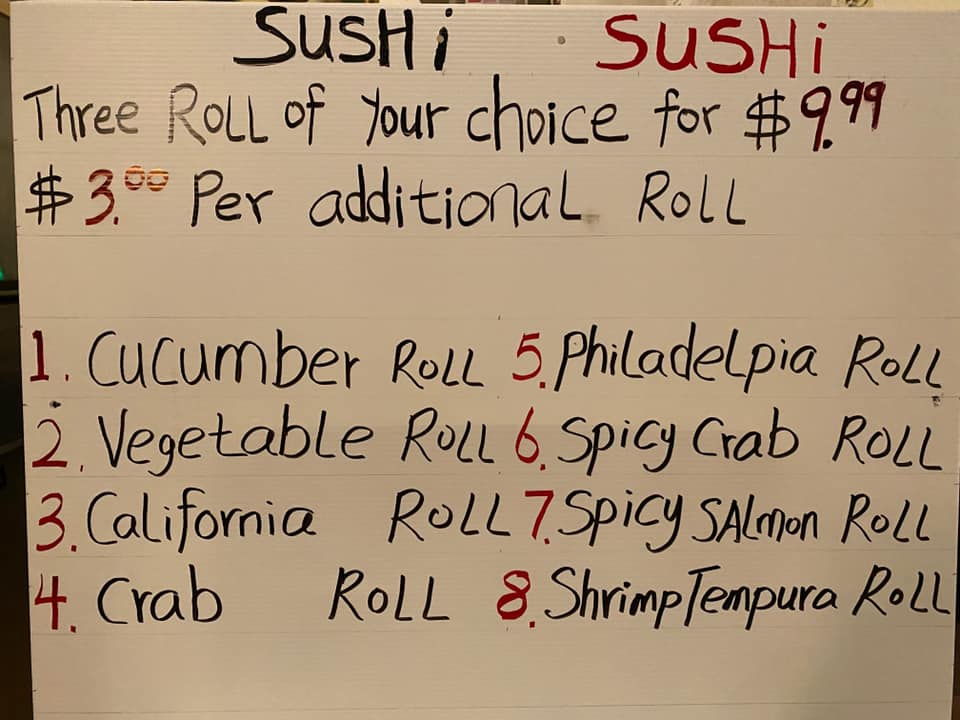 SUSHi SUSHi
Three ROLL of Your choice for $9.99
$3.00 Per additional ROLL
1. Cucumber ROLL 5. PhiLadeLpia ROLL
2. VegetabLe ROLL 6. Spicy Crab ROLL
3. California ROLL 7. Spicy SALmon ROLL
4. Crab ROLL 8. Shrimp Tempura ROLL